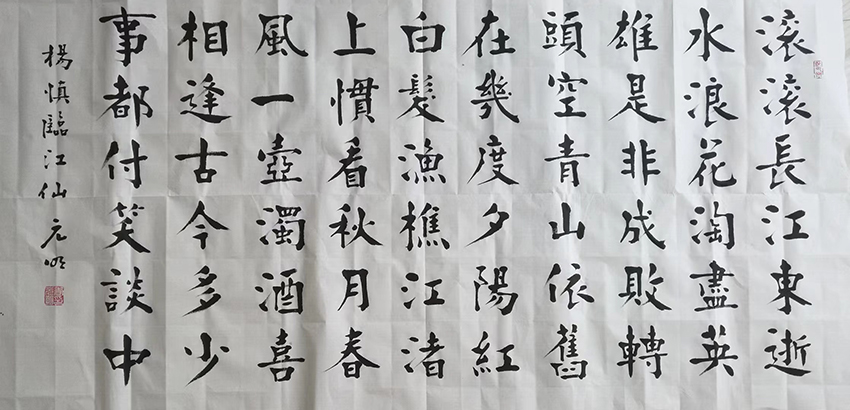 滚滚長江東逝
水浪花淘盡英
雄是非成敗轉
頭空青山依舊
在幾度夕陽紅
白髮漁樵江渚
上慣看秋月春
風一壺濁酒喜
相逢古今多少
事都付笑談中
楊慎臨江仙 元明